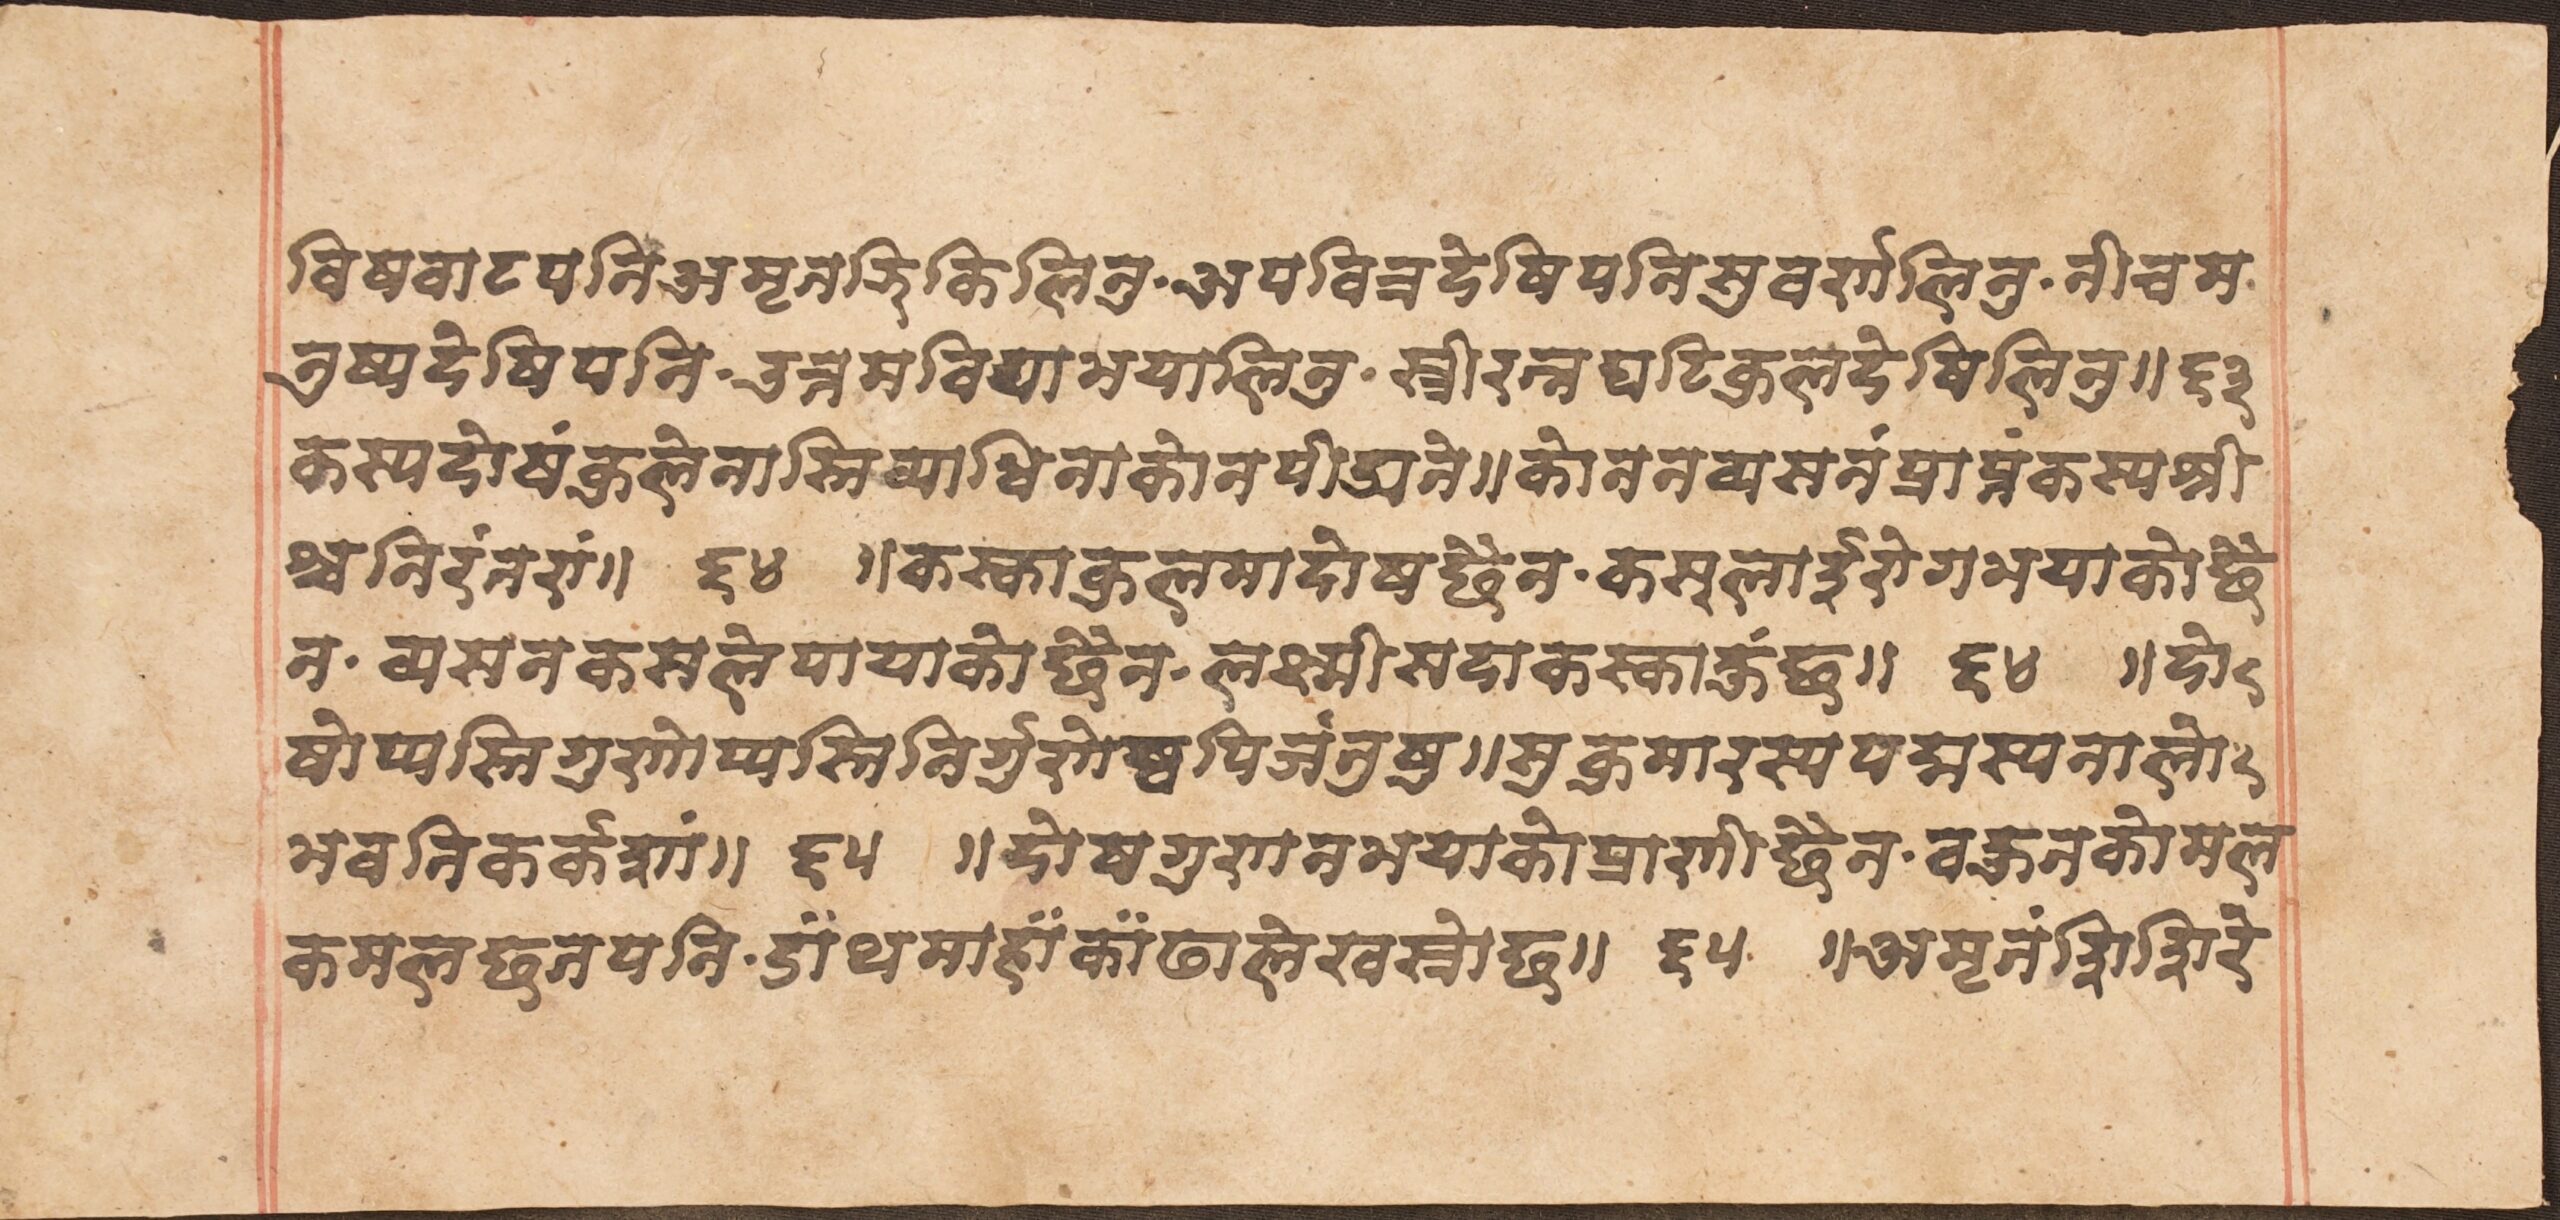 विषवाटपनिअमृतझिकिलिनु·अपवित्रदेषिपनिसुवर्णलिनु·नीचम
नुष्यदेषिपनि·उत्तमविद्याभयालिनु·स्त्रीरत्नघटिकुलदेषिलिनु॥६३
कस्यदोषंकुलेनास्तिव्याधिनाकोनपीड्यते॥कोननव्यसनंप्राप्तंकस्यश्री
श्चनिरंतरां॥ ६४ ॥कस्काकुलमादोषछैन·कस्लाईरोगभयाकोछै
न·व्यसनकसलेपायाकोछैन·लक्ष्मीसदाकस्काऊंछ॥ ६४ ॥दो
षोप्यस्तिगुणोप्यस्तिनिर्गुणोष्वपिजंतुषु॥सुकुमारस्यपद्मस्यनालो
भवतिकर्कशां॥ ६५ ॥दोषगुणनभयाकोप्राणीछैन·वहुतकोमल
कमलछनपनि·डाँथमाहाँकाँढालेखस्रोछ॥ ६५ ॥अमृतंशिशिरे